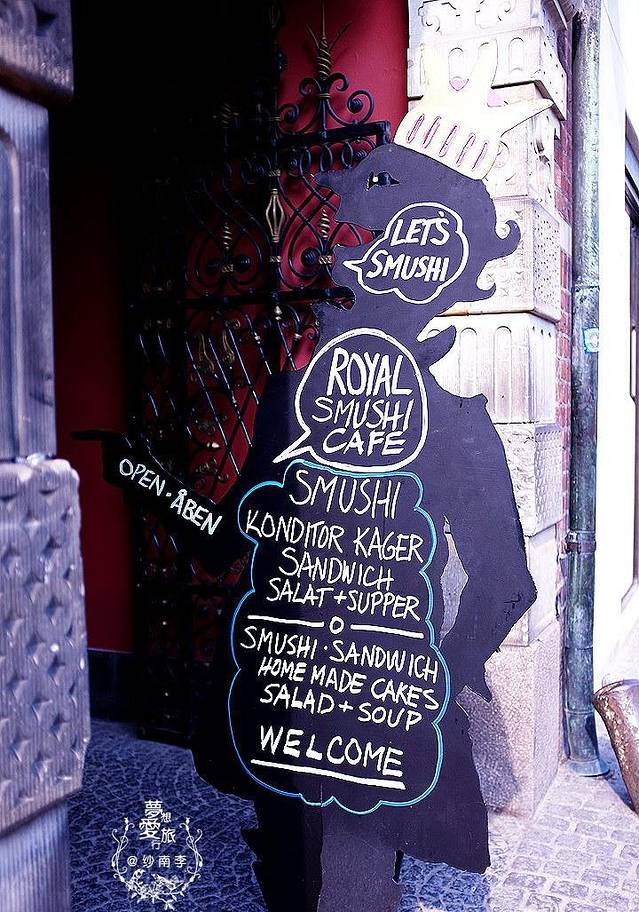 LET'S
SMUSHI
ROYAL
SMUSHI
CAFE
OPEN · ÅBEN
SMUSHI
KONDITOR KAGER
SANDWICH
SALAT + SUPPER
SMUSHI · SANDWICH
HOME MADE CAKES
SALAD + SOUP
WELCOME
夢想
愛旅
行
@纱南李